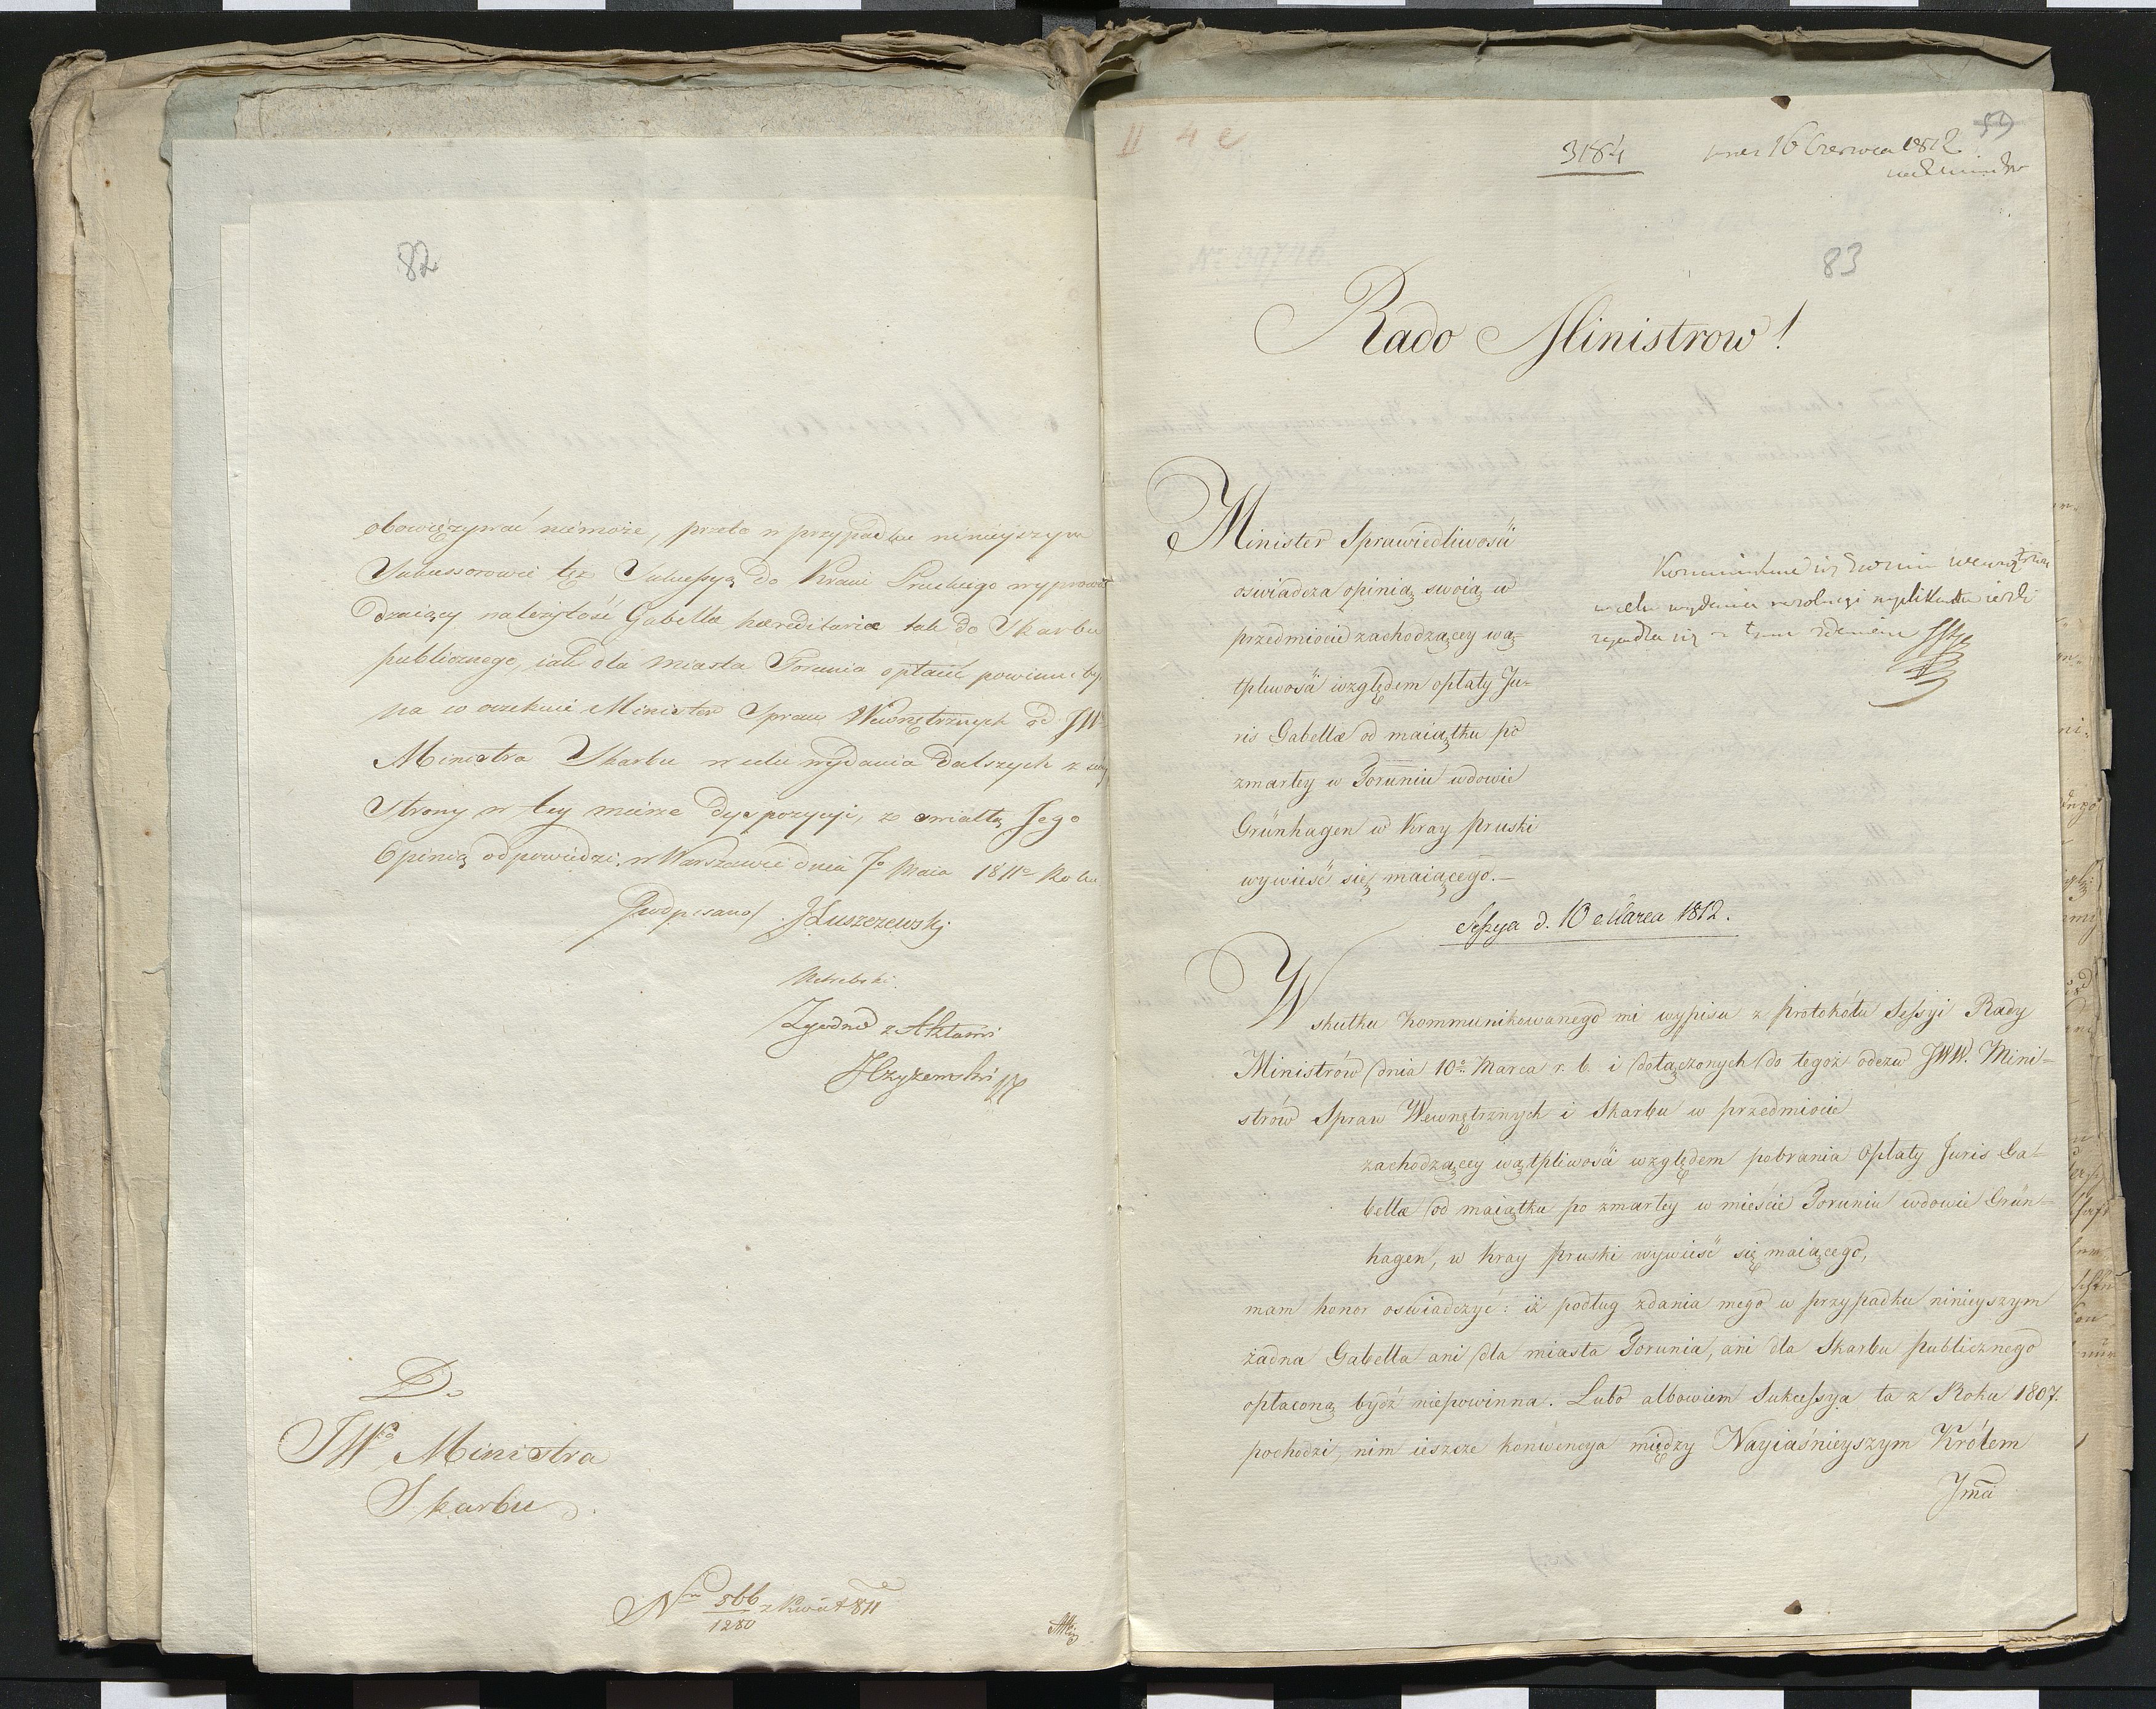 82
obowięzywać niemoże, przeto w przypadku ninieyszym
Sukcessorowie tęż Sukcessyą do Kraiu Pruskiego wyprowa
dzaiący należytość Gabellæ hæreditariæ tak do Skarbu
publicznego, iak dla miasta Torunia opłacić powinni by
na co oczekuie Minister Spraw Wewnętrznych od JW
Ministra Skarbu w celu wydania dalszych z swey
Strony w tey mierze dyspozycyi, z światłą Jego
Opinią odpowiedzi. w Warszawie dnia 7o Maia 1811o Roku
Podpisano/ J Łuszczewski
Zgodno z Aktami
Do
JWo Ministra
Skarbu
Nro 566
1280
II 4 e
3184
dnia 16 Czerwca 1812
59
83
Rado Ministrow!
Minister Sprawiedliwości
oświadcza opinią swoią w
przedmiocie zachodzącey wą-
tpliwości względem opłaty Ju-
ris Gabellæ od maiątku po
zmarłey w Toruniu wdowie
Grünhagen w Kray pruski
wywieść się maiącego.—
Sessya d. 10 Marca 1812.
W skutku kommunikowanego mi wypisu z protokółu Sessyi Rady
Ministrów dnia 10o Marca r. b. i dołączonych do tegoż odezw JWW. Mini-
strów Spraw Wewnętrznych i Skarbu w przedmiocie
zachodzącey wątpliwości względem pobrania opłaty Juris Ga-
bellæ od maiątku po zmarłey w mieście Toruniu wdowie Grün-
hagen, w kray pruski wywieść się maiącego,
mam honor oświadczyć: iż podług zdania mego w przypadku ninieyszym
żadna Gabella ani dla miasta Torunia, ani dla Skarbu publicznego
opłaconą bydź niepowinna. Lubo albowiem Sukcessya ta z Roku 1807.
pochodzi, nim ieszcze konwencya między Nayiaśnieyszym Królem
Jmcią